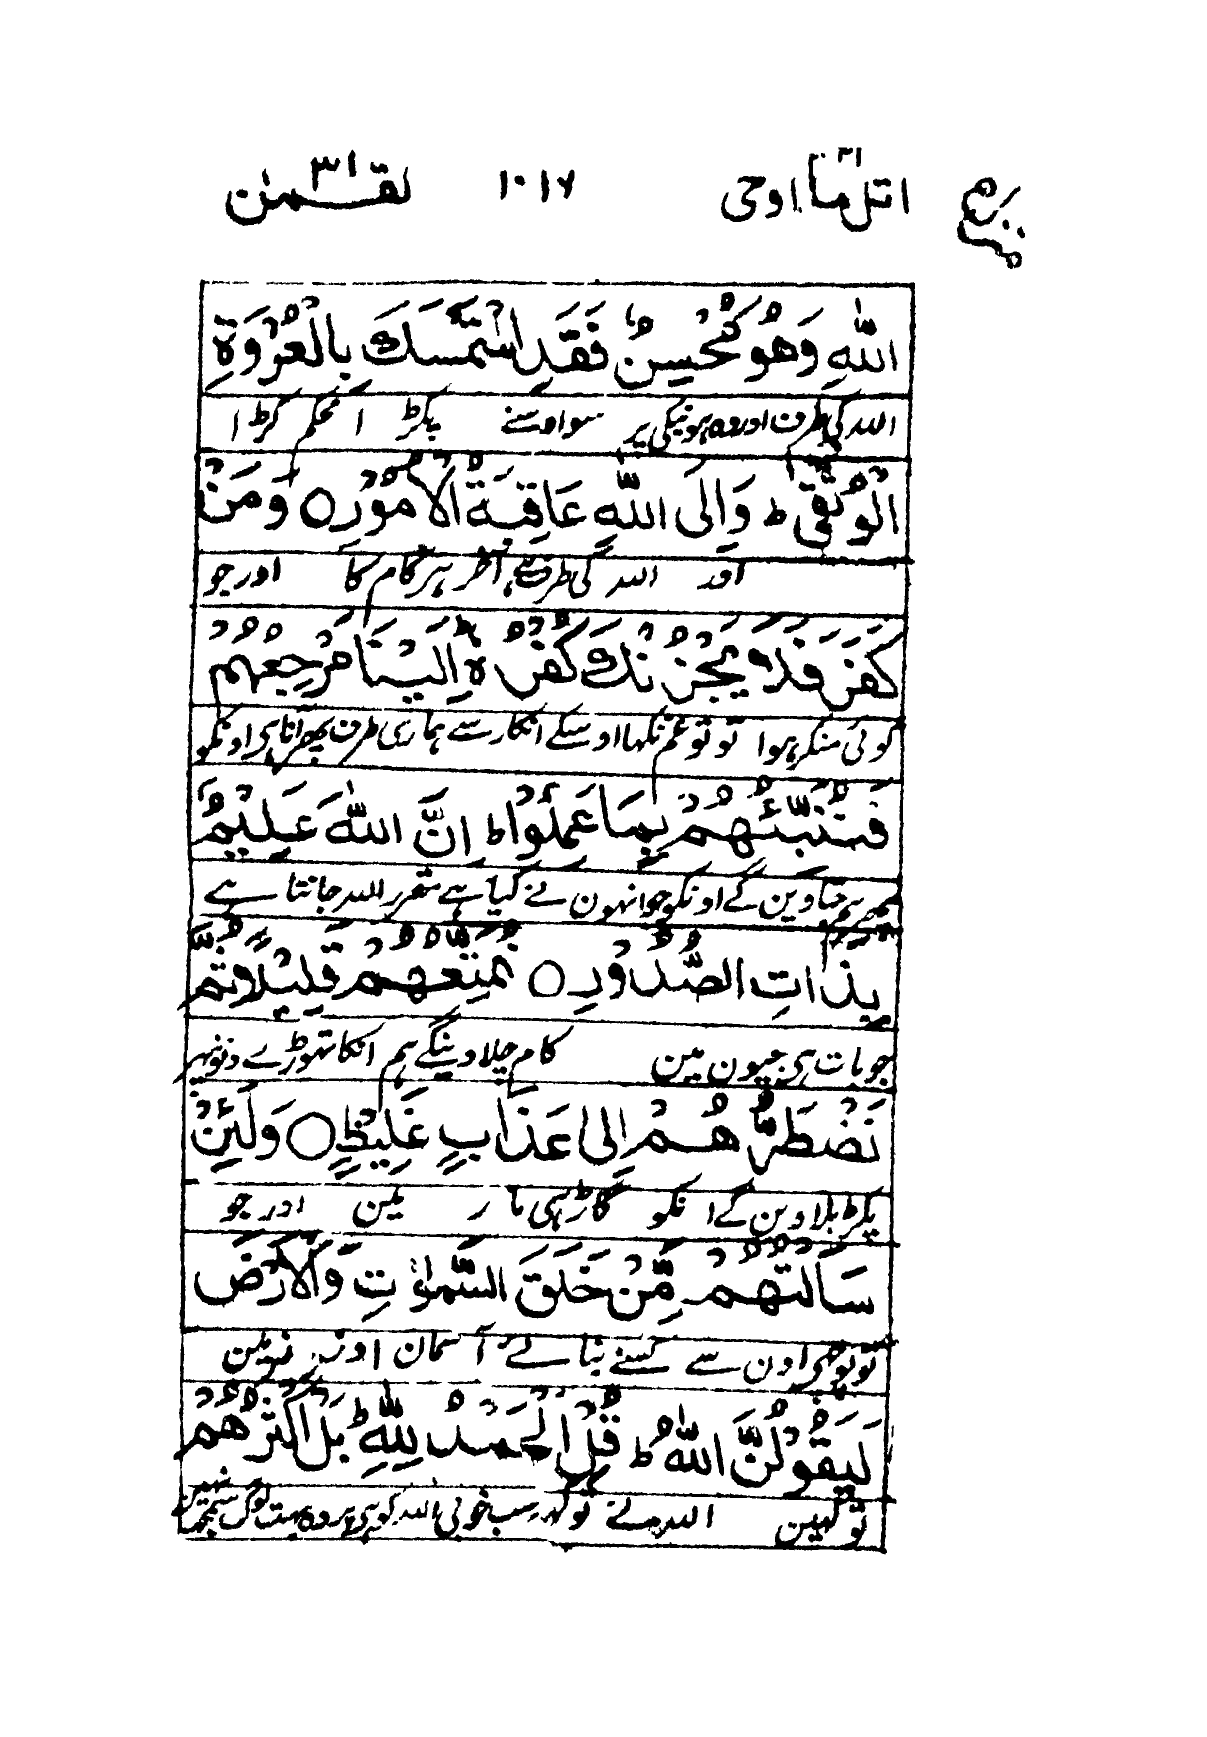 اتل ما اوحی ۲۱ ۱۰۱۷ لقمٰن ۳۱
اللّٰهِ وَهُوَ مُحْسِنٌ فَقَدِ اسْتَمْسَكَ بِالْعُرْوَةِ
اللہ کی طرف اور وہ ہو نیکی پر سو اوسنے پکڑا محکم کڑا
الْوُثْقٰى ط وَاِلَى اللّٰهِ عَاقِبَةُ الْاُمُوْرِ ○ وَمَنْ
اور اللہ کی طرف ہے آخر ہر کام کا اور جو
كَفَرَ فَلَا يَحْزُنْكَ كُفْرُهٗ ط اِلَيْنَا مَرْجِعُهُمْ
کوئی منکر ہوا تو تو غم نکہا اوسکے انکار سے ہماری طرف پھر آنا ہی اونکو
فَنُنَبِّئُهُمْ بِمَا عَمِلُوْا ط اِنَّ اللّٰهَ عَلِيْمٌ
پھر ہم جتاوین گے اونکو جو انہون نے کیا ہے مقرر اللہ جانتا ہے
بِذَاتِ الصُّدُوْرِ ○ نُمَتِّعُهُمْ قَلِيْلًا ثُمَّ
جو بات ہی جیون مین کام چلا وینگے ہم انکا تھوڑے دنون پہر
نَضْطَرُّهُمْ اِلٰى عَذَابٍ غَلِيْظٍ ○ وَلَئِنْ
پکڑ بلاوین گے انکو گاڑہی مار مین اور جو
سَاَلْتَهُمْ مَّنْ خَلَقَ السَّمٰوٰتِ وَالْاَرْضَ
تو پوچھی اون سے کسنے بنائے آسمان اور زمین
لَيَقُوْلُنَّ اللّٰهُ ط قُلِ الْحَمْدُ لِلّٰهِ ط بَلْ اَكْثَرُهُمْ
تو کہین اللہ نے تو کہہ سب خوبی اللہ کو ہی پر وہ بہت لوگ سمجھ نہین